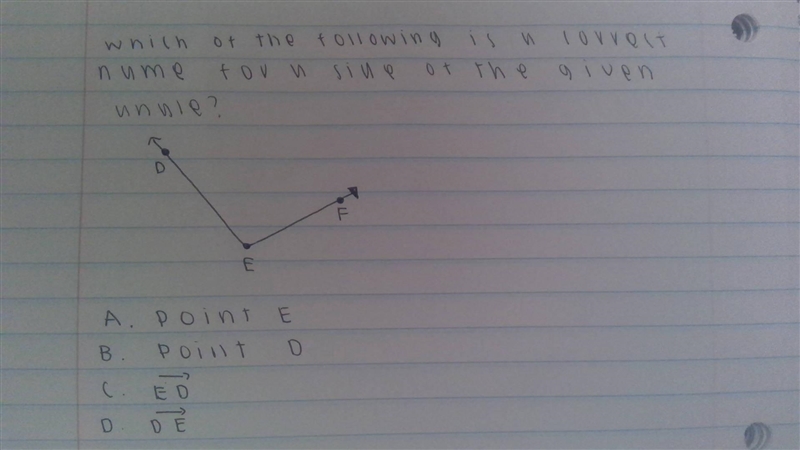 which of the following is a correct
name for a side of the given
angle?
D
F
E
A. point E
B. point D
C. ED
D. DE